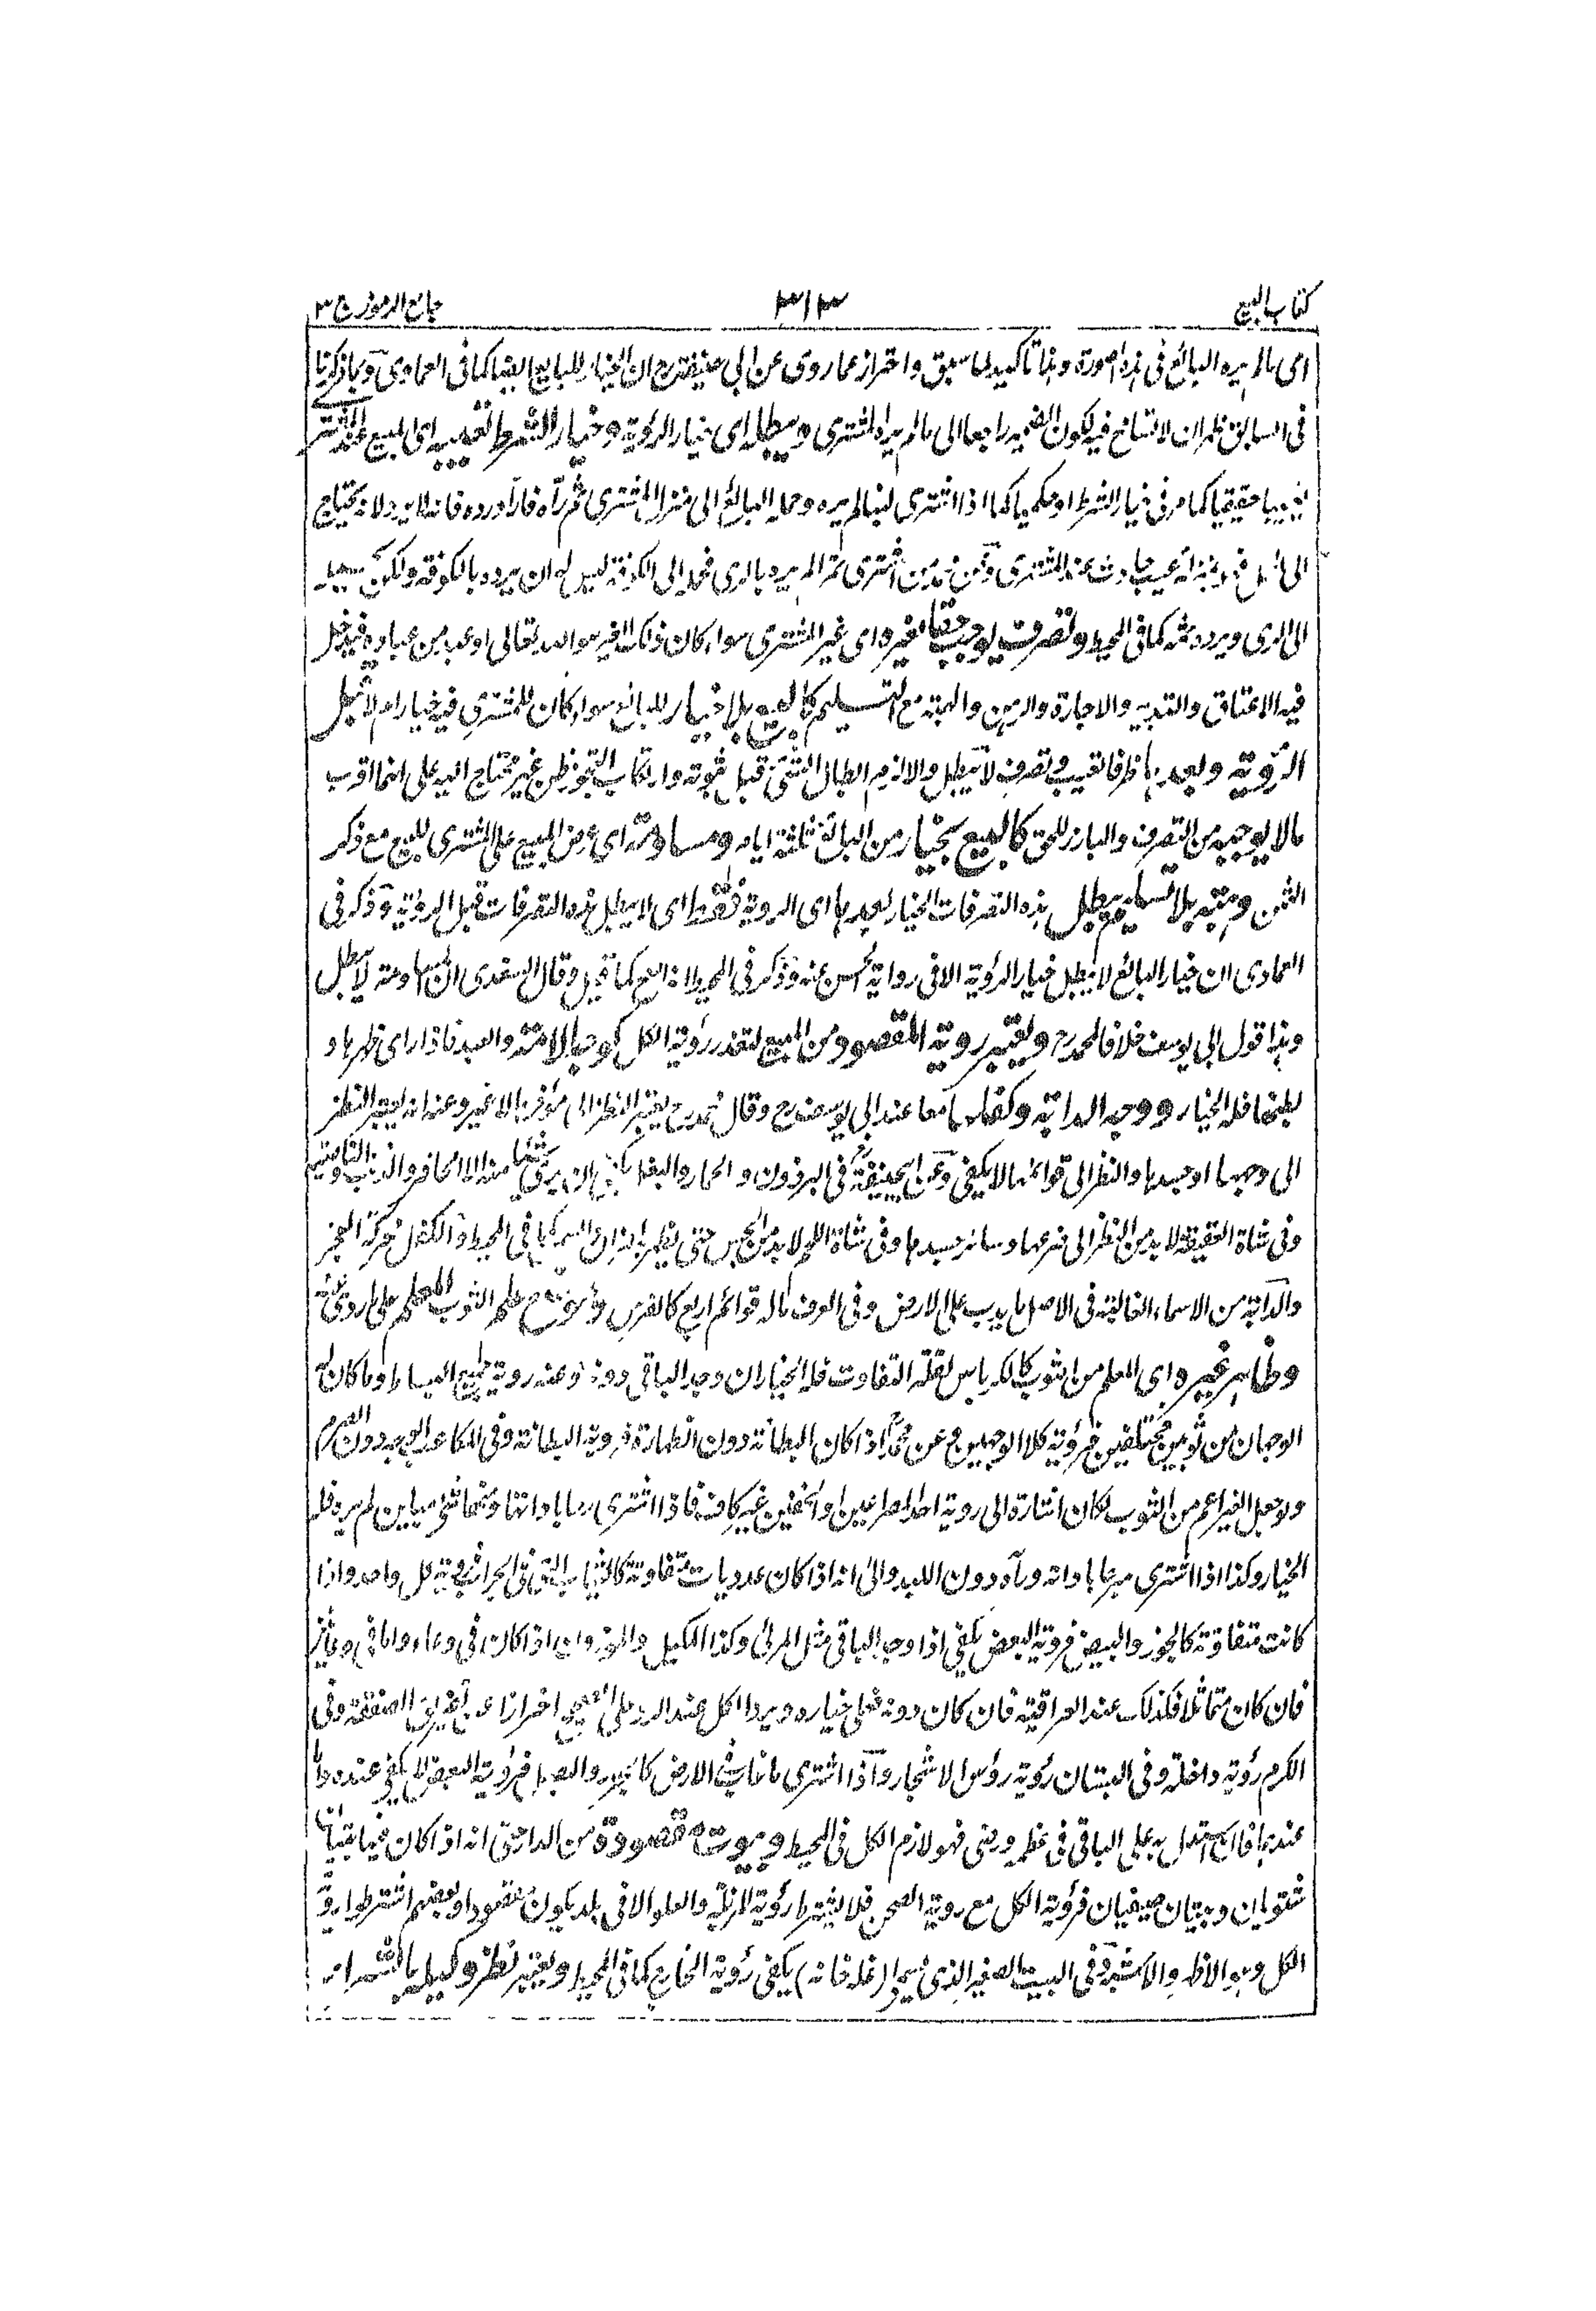 كتاب البيع ٣١٣ جامع الرموز ج ٣
اى مالم يره البائع فى هذه الصورة وهذا تاكيد لما سبق واحتراز عما روى عن ابى حنيفة رح ان الخيار للبايع ايضا كما فى العمادى وبما ذكرنا
فى السابق ظهر ان لا تسامح فيه لكون الضمير راجعا الى مالم يراه المشترى ويبطله اى خيار الرؤية وخيار الشرط تعيبه اى المبيع عند المشترى
تعيبا حقيقيا كما مر فى خيار الشرط او حكميا كما اذا اشترى لبنا لم يره وحمله البائع الى منزل المشترى ثم رآه فاراد رده فانه لا يرد لانه يحتاج
الى الحمل عيب حادث عند المشترى وعن محمد من اشترى تمرا لم يره بالرى فحمله الى الكوفة ليس له ان يرده بالكوفة ولكن يحمله
الى الرى ويرده ثمه كما فى المحيط وتصرف يوجب حقا لغيره اى غير المشترى سواء كان ذلك الغير هو الله تعالى او عبد من عباده فيدخل
فيه الاعتاق والتدبير والاجارة والرهن والهبة مع التسليم كالبيع بلا خيار للبائع سواء كان للمشترى فيه خيار ام لا قبل
الرؤية وبعدها ظرفا تعيب وتصرف لا يبطل والا لزم ابطال الشئ قبل ثبوته وارتكاب التجوز ظن غير محتاج اليه على انهما اقرب
مالا يوجبه من التصرف والبارز للحق كالبيع بخيار من البائع ثلثة ايام ومساومة اى عرض المبيع على المشترى للبيع مع ذكر
الثمن وهبة بلا تسليم يبطل هذه التصرفات الخيار بعدها اى الروية فقط اى لا يبطل هذه التصرفات قبل الرؤية وذكر فى
العمادى ان خيار البائع لا يبطل خيار الرؤية الا فى رواية الحسن عنه وذكر فى المحيط انه اصح كما قيل وقال السغدى ان المساومة لا يبطل
وهذا قول ابى يوسف خلافا لمحمد رح ويعتبر روية المقصود من المبيع لتعذر رؤية الكل كوجه الامة والعبد فاذا راى ظهرها و
بطنها فله الخيار ووجه الدابة وكفلها معا عند ابى يوسف رح وقال محمد رح يعتبر النظر الى مؤخرها لا غير وعنه انه يعتبر النظر
الى وجهها او جسدها والنظر الى قوائمها لا يكفى وعن ابيحنيفة رح فى البرذون والحمار والبغل يكفى ان يرى شيئا منه الا الحافر والذنب والناصية
وفى شاة القنية لا بد من النظر الى ضرعها وسائر جسدها وفى شاة اللحم لا بد من الجس حتى يظهر الهزال والسمن كما فى المحيط والكفل محركة العجز
والدابة من الاسماء الغالبة فى الاصل ما يدب على الارض وفى العرف ماله قوائم اربع كالفرس وموضع علم الثوب المعلم على ما روى عنه
وظاهر غيره اى المعلم من الثوب كالكرباس لقلة التفاوت فله الخيار ان وجد الباقى دونه وعنه روية جميع البساط وما كان له
الوجهان من ثوبين مختلفين فرؤية كلا الوجهين وعن محمد اذا كان البطانة دون الظهارة فروية البطانة وفى المكاعب الوجه دون الصرم
ولو جعل الغير اعم من الثوب لكان اشارة الى روية احد المصراعين او الخفين غير كافية فاذا اشترى رحا باداتها ومنها شئ مباين لم يره فله
الخيار وكذا اذا اشترى سرجا باداته ورآه دون اللبد والى انه اذا كان عدديات متفاوتة كالثياب التى فى الجراب فروية كل واحد واذا
كانت متقاوتة كالجوز والبيض فروية البعض يكفى اذا وجد الباقى مثل المرئى وكذا المكيل والموزون اذا كان فى وعاء واما فى وعائين
فان كان متماثلا فكذلك عند العراقية فان كان دونه فعلى خياره ويرد الكل عند الرد على الصحيح احترازا عن تفريق الصفقة وفى
الكرم رؤية داخله وفى البستان رؤية رؤس الاشجار واذا اشترى ما غاب فى الارض كالجزر والبصل فرؤية البعض لا يكفى عنده واما
عندهما فاذا استدل به على الباقى فى عظم ورضى فهو لازم الكل فى المحيط وبيوت مقصودة من الدار حتى انه اذا كان فيها بيتان
شتويان وبيتان صيفيان فرؤية الكل مع روية الصحن فلا يشترط رؤية المزبلة والعلو الا فى بلد يكون مقصودا وبعضهم اشترطوا روية
الكل وهو الاظهر والاشبه وفى البيت الصغير الذى يسمى (غله خانه) يكفى رؤية الخارج كما فى المحيط ويعتبر نظر وكيله بالشراء